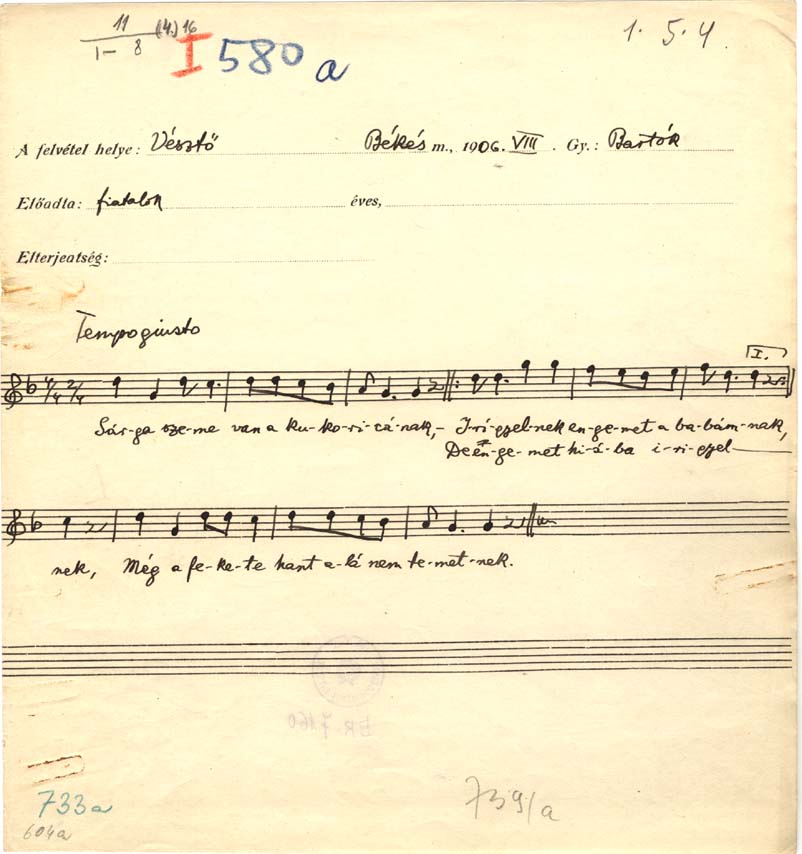 11 (4.) 16
1– 8
I 580 a
1. 5. 4.
A felvétel helye: Vésztő Békés m., 1906. VIII. Gy.: Bartók
Előadta: fiatalok éves,
Elterjedtség:
Tempo giusto
4/4 2/4
I.
Sár-ga sze-me van a ku-ko-ri-cá-nak,- I-ri-gyel-nek en-ge-met a ba-bám-nak,
De en-ge-met hi-á-ba i-ri-gyel-
nek, Még a fe-ke-te hant a-lá nem te-met-nek.
ER. 7160
733a
604a
739/a